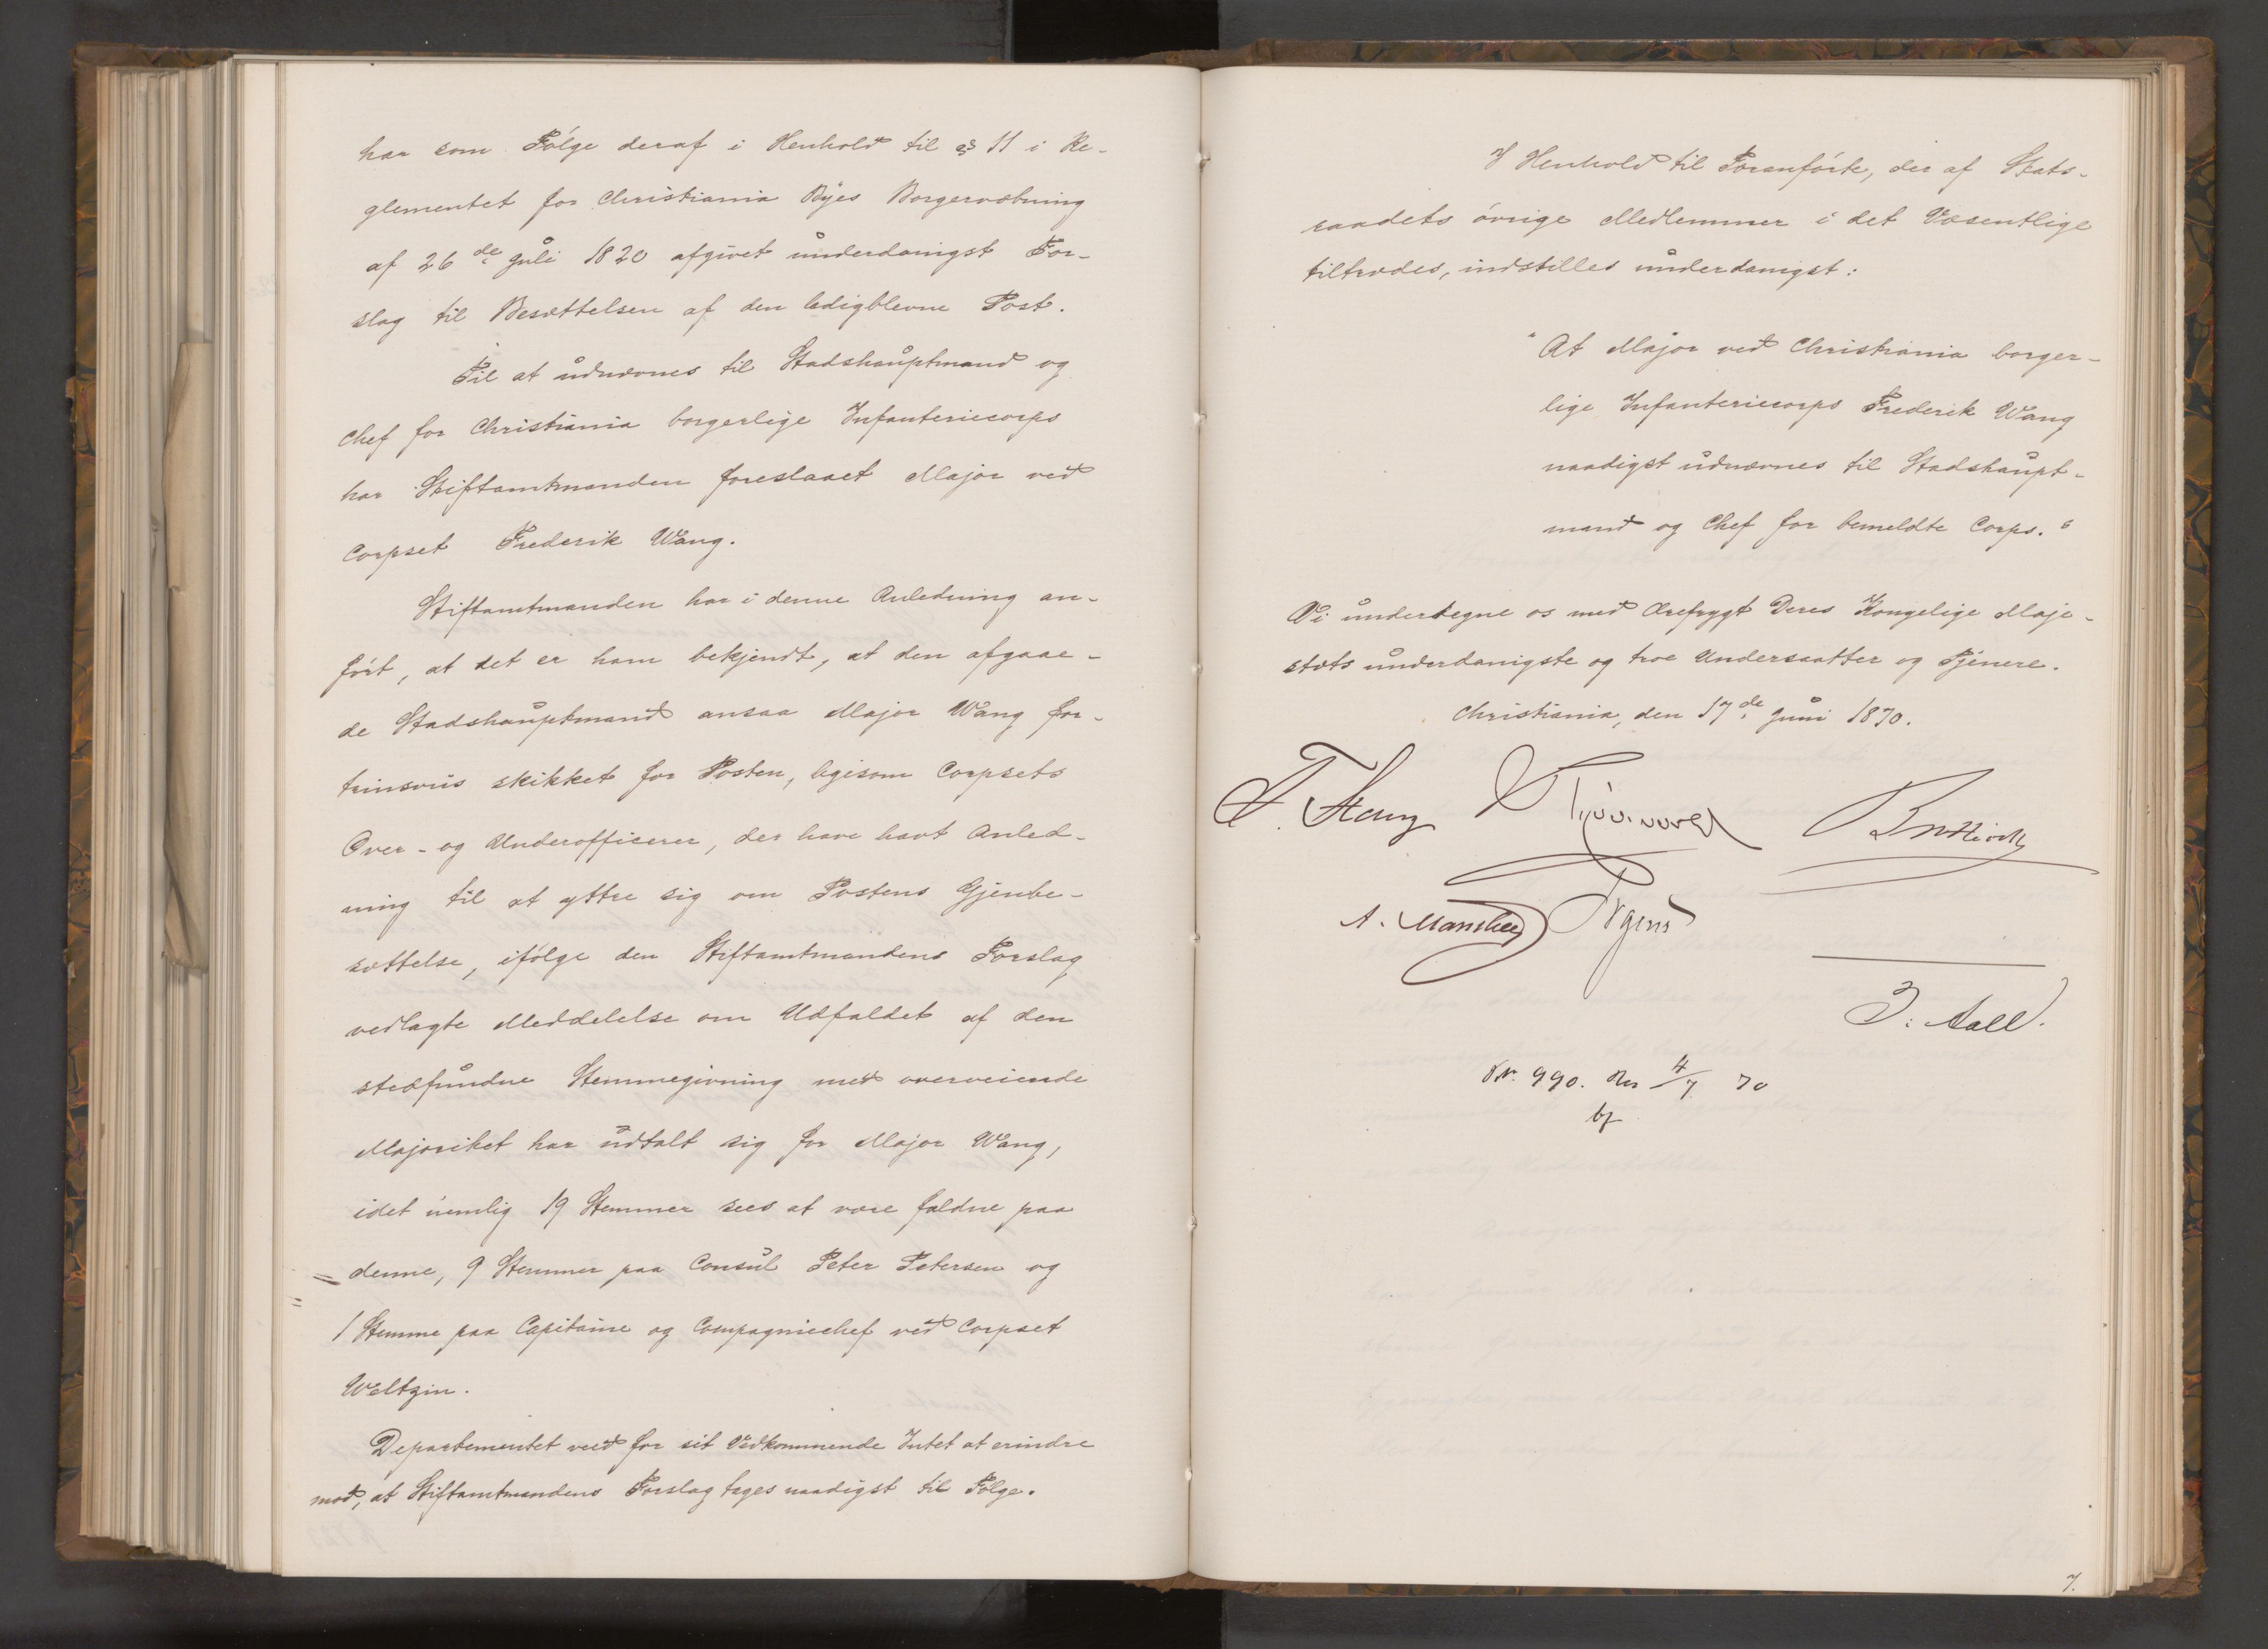 har som Følge deraf i Henhold til § 11 i Re-
glementet for Christiania Byes Borgervæbning
af 26de Juli 1820 afgivet underdanigst For-
slag til Besættelsen af den ledigblevne Post.
Til at udnævnes til Stadshauptmand og
Chef for Christiania borgerlige Infanteriecorps
har Stiftamtmanden foreslaaet Major ved
Corpset Frederik Wang.
Stiftamtmanden har i denne Anledning an-
ført, at det er ham bekjendt, at den afgaae-
de Stadshauptmand ansaa Major Wang for-
trinsviis skikket for Posten, ligesom Corpsets
Over- og Underofficerer, der have havt Anled-
ning til at yttre sig om Postens Gjenbe-
sættelse, ifølge den Stiftamtmandens Forslag
vedlagte Meddelelse om Udfaldet af den
stedfundne Stemmegivning med overveiende
Majoritet har udtalt sig for Major Wang,
idet nemlig 19 Stemmer sees at være faldne paa
denne, 9 Stemmer paa Consul Peter Petersen og
1 Stemme paa Capitaine og Compagniechef ved Corpset
Weltzin.
Departementet veed for sit Vedkommende Intet at erindre
mod, at Stiftamtmandens Forslag tages naadigst til Følge.
I Henhold til Foranførte, der af Stats-
raadets øvrige Medlemmer i det Væsentlige
tiltrædes, indstilles underdanigst:
"At Major ved Christiania borger-
lige Infanteriecorps Frederik Wang
naadigst udnævnes til Stadshaupt-
mand og Chef for bemeldte Corps."
Vi undertegne os med Ærefrygt Deres Kongelige Maje-
stæts underdanigste og troe Undersaatter og Tjenere.
Christiania, den 17de Juni 1870.
F. Stang
A. Manthey Irgens
J. Aall.
No. 990. 4/7 70
7.